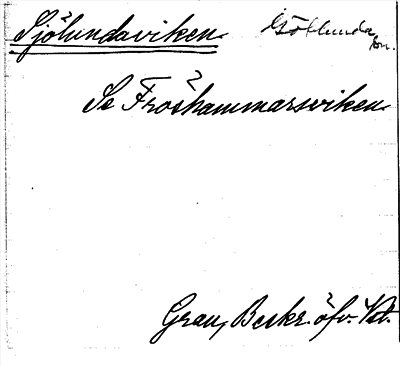 Sjölundaviken Götlunda
sn.
Se Froshammarsviken
Grau, Beskr. öfv. Vst.